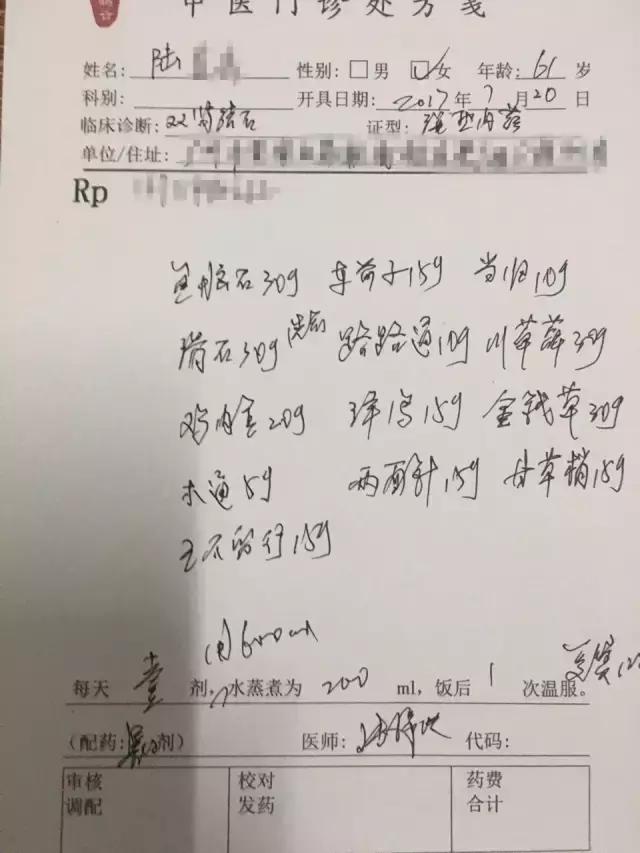 中医门诊处方笺
姓名: 陆 性别: □男 ☑女 年龄: 61 岁
科别: 开具日期: 2017年7月20日
临床诊断: 双肾结石 证型: 湿热内蕴
单位/住址:
Rp
30g 车前子15g 当归10g
滑石30g 先煎 路路通10g 川萆薢30g
鸡内金20g 15g 金钱草30g
木通5g 两面针15g 甘草梢15g
王不留行15g
600ml
每天 壹 剂, 水蒸煮为 200 ml, 饭后 1 次温服。
(配药: 剂) 医师: 代码:
审核 校对 药费
调配 发药 合计